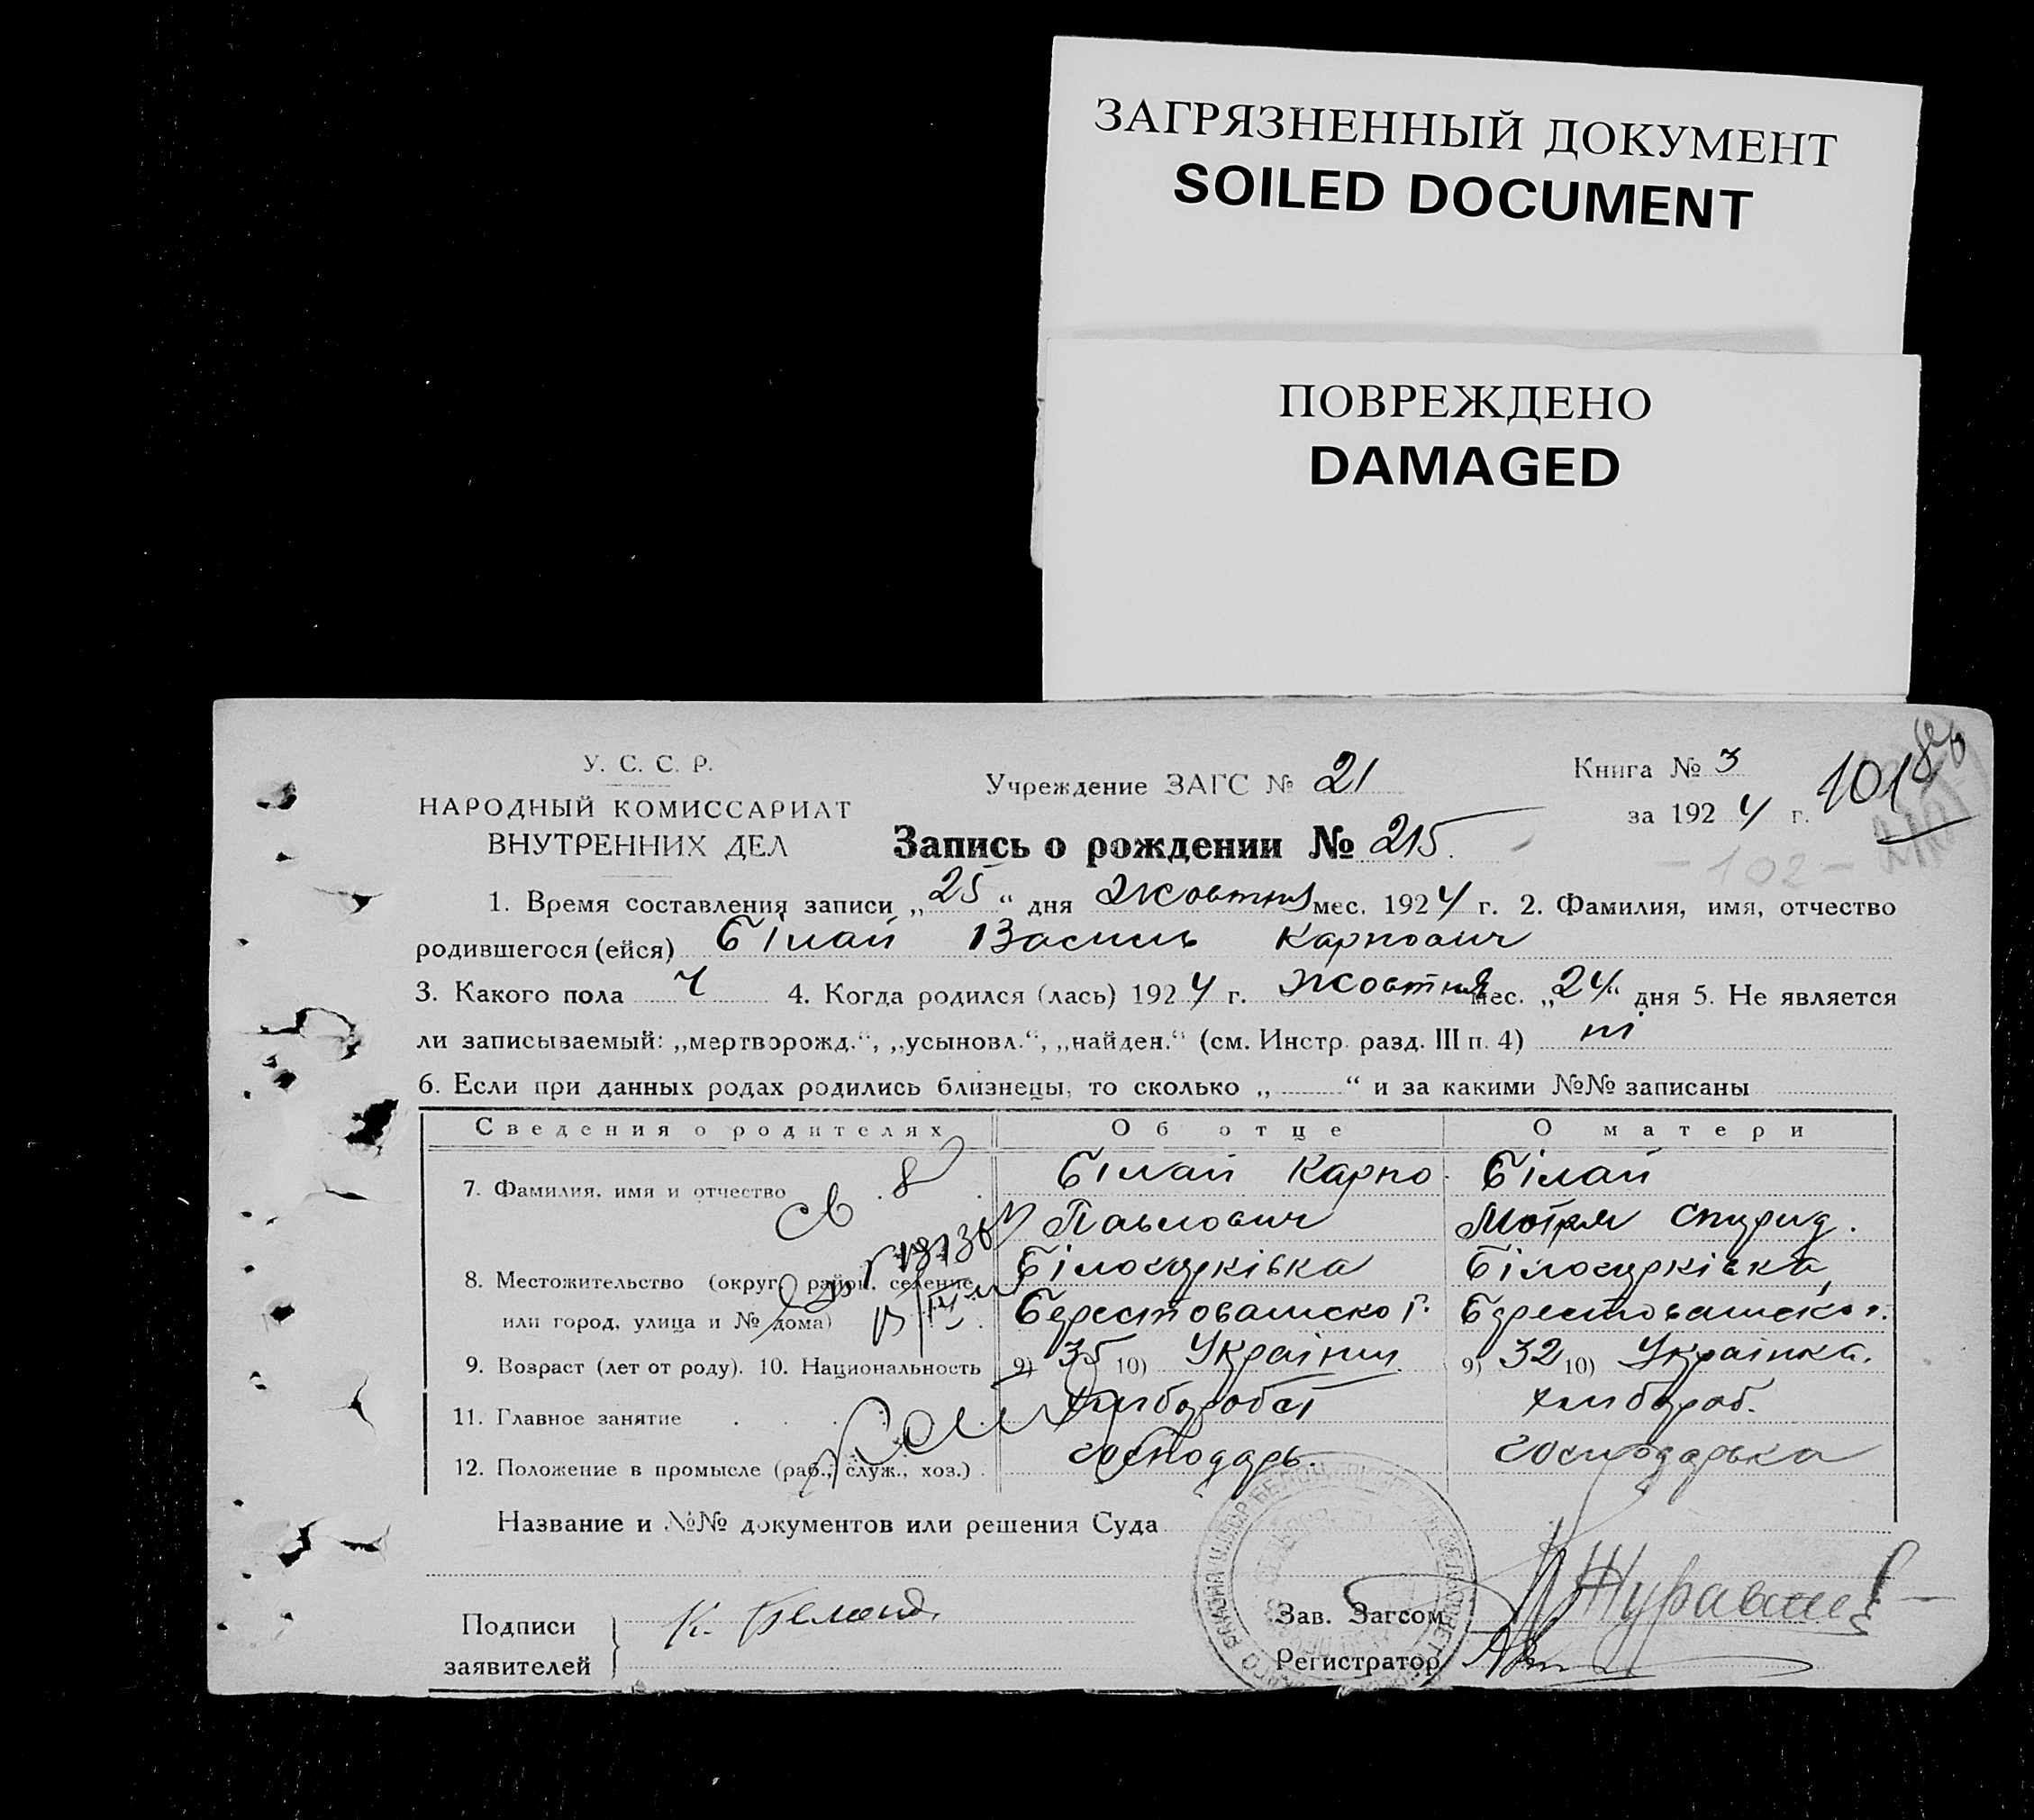 ЗАГРЯЗНЕННЫЙ ДОКУМЕНТ
SOILED DOCUMENT
ПОВРЕЖДЕНО
DAMAGED
У. С. С. Р.
НАРОДНЫЙ КОМИССАРИАТ
ВНУТРЕННИХ ДЕЛ
Учреждение ЗАГС № 21
Книга № 3
за 1924 г.
101
86
Запись о рождении № 215
- 102 -
1. Время составления записи „25“ дня Жовтня мес. 1924 г. 2. Фамилия, имя, отчество
родившегося (ейся) Білай Василь Карпович
3. Какого пола ч 4. Когда родился (лась) 1924 г. Жовтня мес. „24“ дня 5. Не является
ли записываемый: „мертворожд.“, „усыновл.“, „найден.“ (см. Инстр. разд. III п. 4) ні
6. Если при данных родах родились близнецы, то сколько „ “ и за какими №№ записаны
Сведения о родителях Об отце О матери
7. Фамилия, имя и отчество Білай Карпо Білай
Павлович Мотря Спирид.
8. Местожительство (округ, район, селение Білоцурківка Білоцурківка,
или город, улица и № дома)
9. Возраст (лет от роду). 10. Национальность 9) 35 10) Українец 9) 32 10) Українка.
11. Главное занятие хлібороб хлібороб.
12. Положение в промысле (раб., служ., хоз.) господарь. господарька
Название и №№ документов или решения Суда
Подписи
заявителей
К. Белай
Зав. Загсом
Регистратор